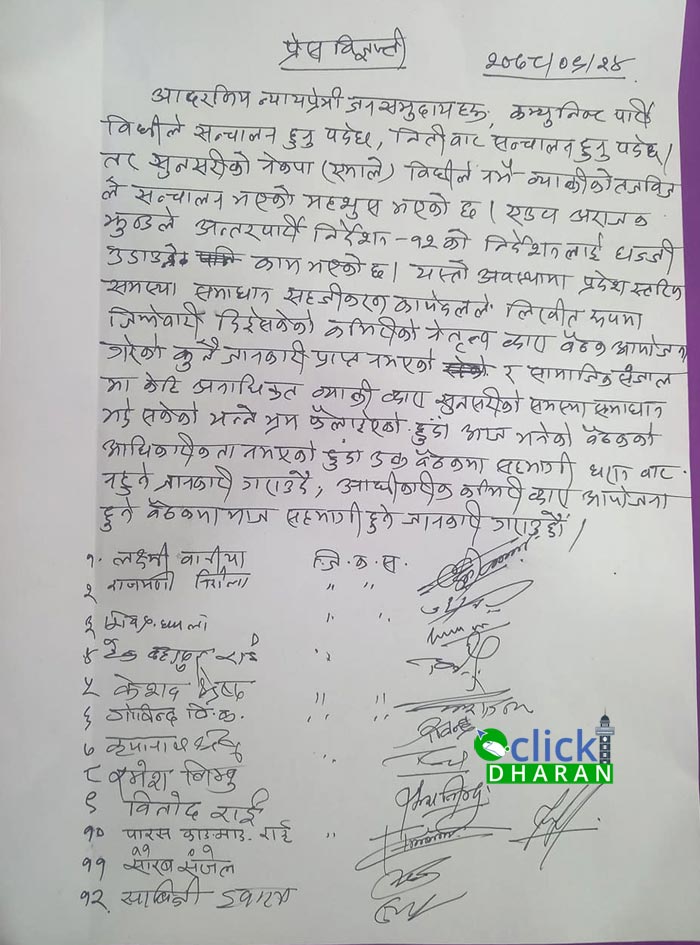 प्रेस विज्ञप्ती
२०७८/०६/२४
आदरणिय न्यायप्रेमी जनसमुदायहरू, कम्युनिष्ट पार्टी
विधीले सन्चालन हुनु पर्दछ, नितीबाट सन्चालन हुनु पर्दछ।
तर सुनसरीको नेकपा (एमाले) विधीले नभै व्याक्तीको तजविज
ले सन्चालन भएको महशुस भएको छ। एउटा अराजक
झुण्डले अन्तरपार्टी निर्देशन -१२ को निर्देशनलाई धज्जी
उडाउने काम भएको छ। यस्तो अवस्थामा प्रदेश स्तरिय
समस्या समाधान सहजीकरण कार्यदलले लिखीत रूपमा
जिम्मेवारी दिईसकेको कमिटीको नेतृत्व द्वारा बैठक आयोजना
गरेको कुनै जानकारी प्राप्त नभएको र सामाजिक संजाल
मा केहि अनाधिकृत व्याक्ती द्वारा सुनसरीको समस्या समाधान
भई सकेको भन्ने भ्रम फैलाईएको हुँदा आज भनेको बैठकको
आधिकारीकता नभएको हुँदा उक्त बैठकमा सहभागी धरान बाट
नहुने जानकारी गराउँदै, आधीकारीक कमिटी द्वारा आयोजना
हुने बैठकमा मात्र सहभागी हुने जानकारी गराउँदछौं।
१. लक्ष्मी वानीया जि. क. स.
२ राजमणी निरौला " "
३ " "
४ टेक बहादुर राई "
५ केशव " "
६ गोविन्द वि.क. " "
७ "
८ रमेश लिम्बु
९ विनोद राई
१० पारस राई "
११ संजेल
१२. सावित्री
click
DHARAN